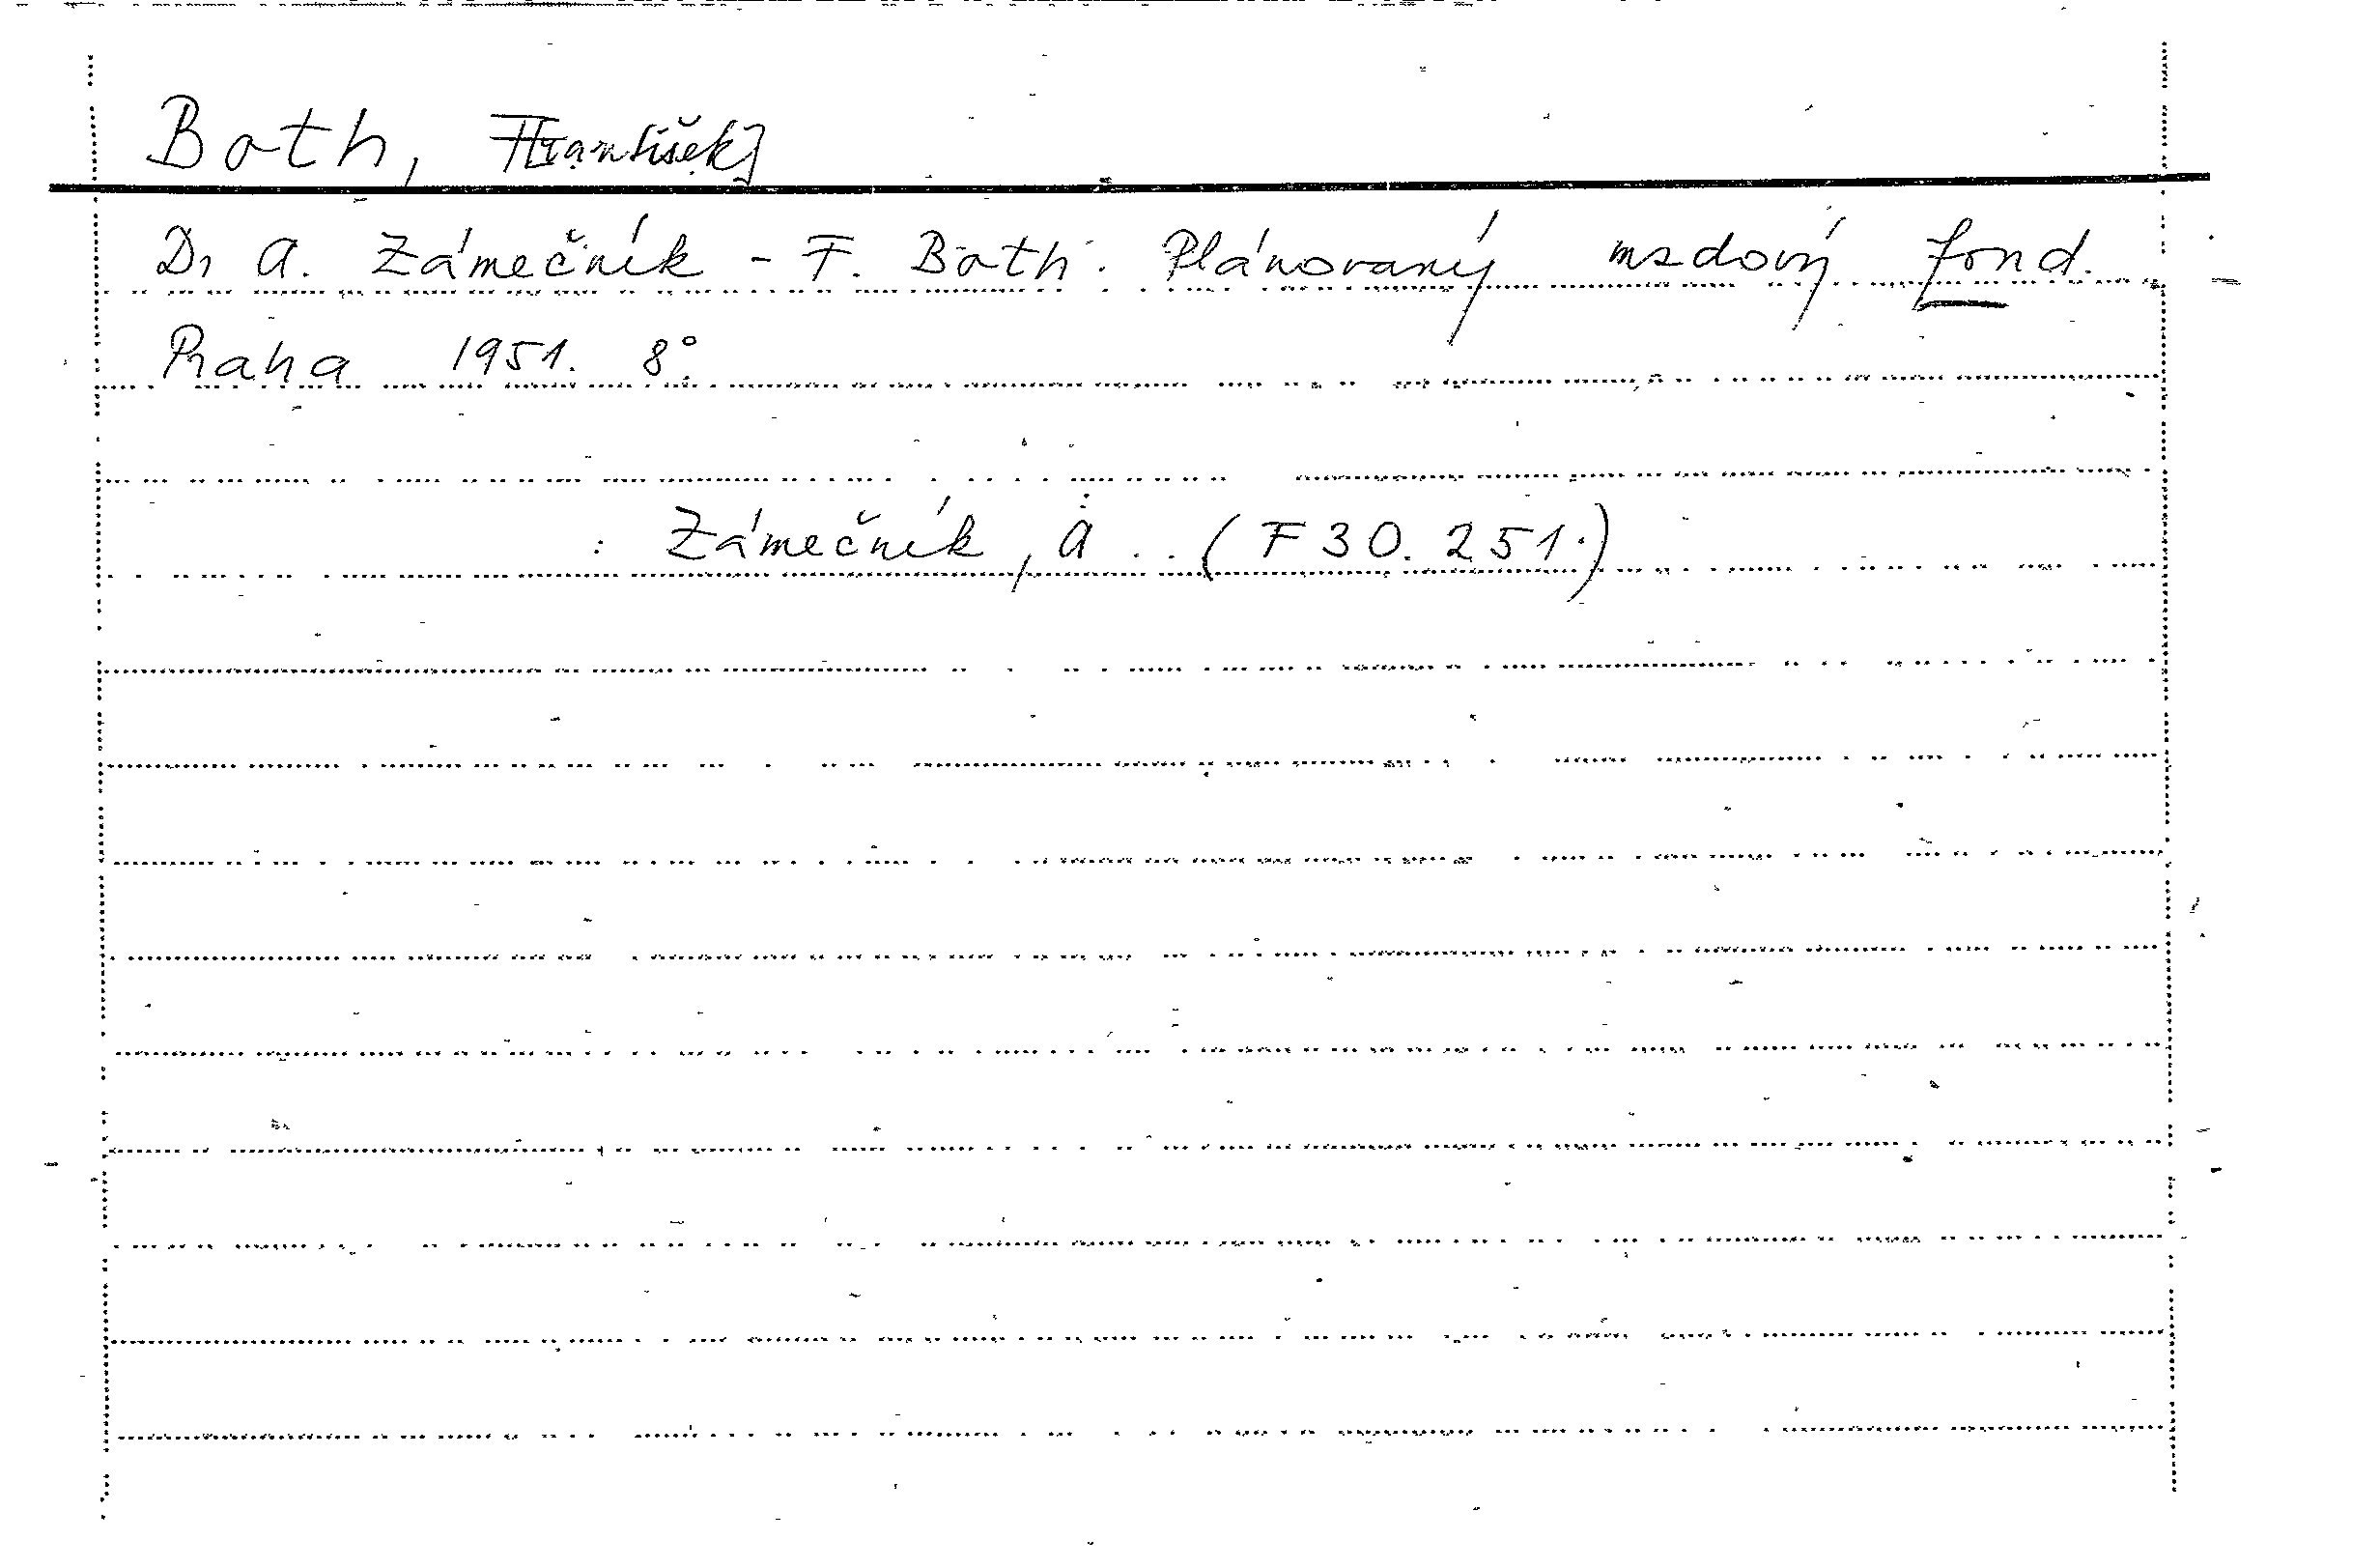 Both, F[rantišek]
Dr A. Zámečník - F. Both: Plánovaný mzdový fond.
Praha 1951. 8°.
: Zámečník, A .. (F 30.251.)